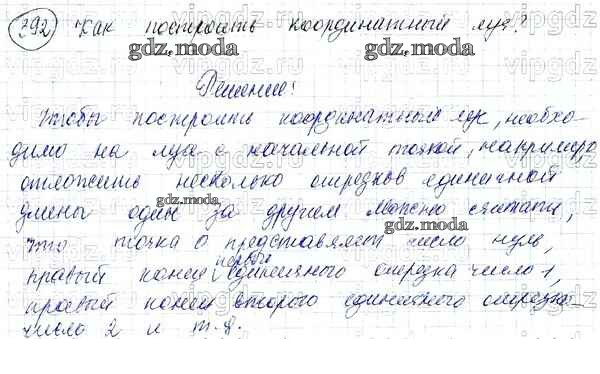 292) Как построить координатный луч?
Решение:
Чтобы построить координатный луч, необхо-
димо на луч с начальной точкой, например
отложить несколько отрезков единичной
длины один за другим. Можно считать,
что точка О представляет число нуль,
правый конец первый единичного отрезка число 1,
правый конец второго единичного отрезка-
число 2 и т.д.
gdz.moda
gdz.moda
gdz.moda
gdz.moda
gdz.moda